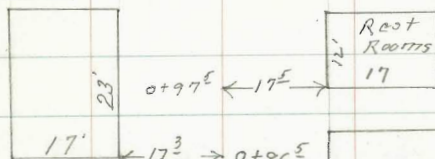 Rest
Rooms
12'
17
23'
0+97⁵
17⁵
17'
17³
0+96⁵